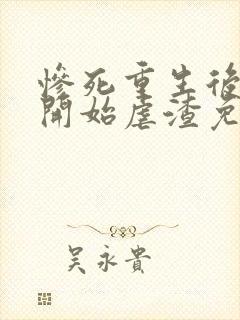 慘死重生後
開始虐渣免
吳永貴